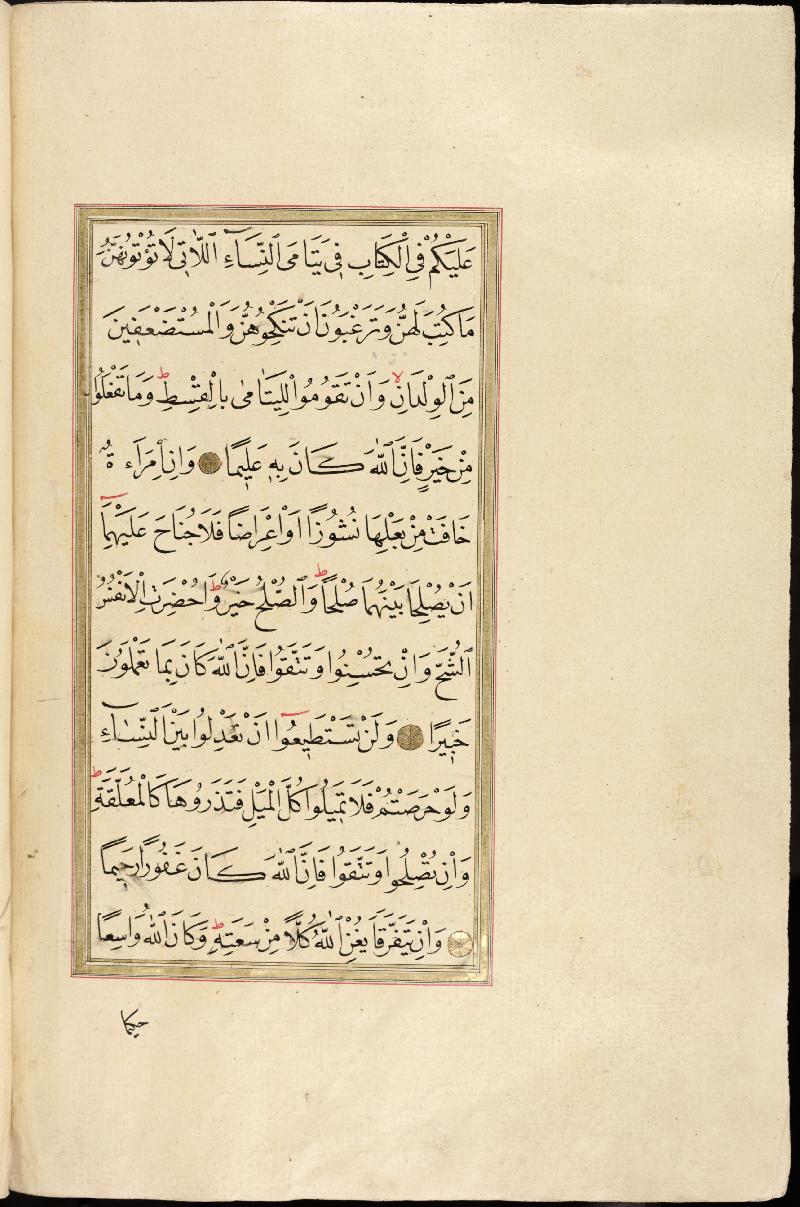 عَلَيْكُمْ فِي الْكِتَابِ فِي يَتَامَى النِّسَاءِ اللَّاتِي لَا تُؤْتُونَهُنَّ
مَا كُتِبَ لَهُنَّ وَتَرْغَبُونَ اَنْ تَنْكِحُوهُنَّ وَالْمُسْتَضْعَفِينَ
مِنَ الْوِلْدَانِ لا وَاَنْ تَقُومُوا لِلْيَتَامٰى بِالْقِسْطِ ط وَمَا تَفْعَلُوا
مِنْ خَيْرٍ فَاِنَّ اللّٰهَ كَانَ بِهِ عَلِيمًا وَاِنِ امْرَاَءةٌ
خَافَتْ مِنْ بَعْلِهَا نُشُوزًا اَوْ اِعْرَاضًا فَلَا جُنَاحَ عَلَيْهِمَٓا
اَنْ يُصْلِحَا بَيْنَهُمَا صُلْحًا ط وَالصُّلْحُ خَيْرٌ ط وَاُحْضِرَتِ الْاَنْفُسُ
الشُّحَّ وَاِنْ تُحْسِنُوا وَتَتَّقُوا فَاِنَّ اللّٰهَ كَانَ بِمَا تَعْمَلُونَ
خَبِيرًا وَلَنْ تَسْتَطِيعُٓوا اَنْ تَعْدِلُوا بَيْنَ النِّسَٓاءِ
وَلَوْ حَرَصْتُمْ فَلَا تَمِيلُوا كُلَّ الْمَيْلِ فَتَذَرُوهَا كَالْمُعَلَّقَةِ ط
وَاِنْ تُصْلِحُوا وَتَتَّقُوا فَاِنَّ اللّٰهَ كَانَ غَفُورًا رَحِيمًا
وَاِنْ يَتَفَرَّقَا يُغْنِ اللّٰهُ كُلًّا مِنْ سَعَتِهِ ط وَكَانَ اللّٰهُ وَاسِعًا
حكيما